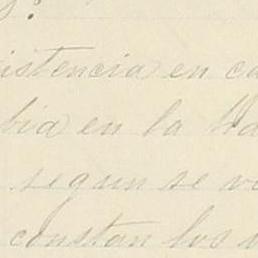 s?
istencia en ca
bia en la Ha
segun se v
constan los